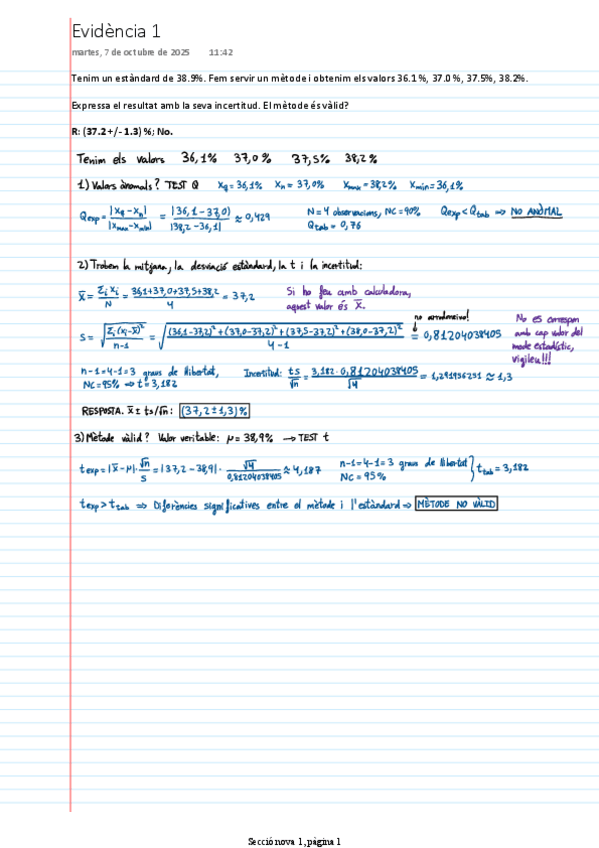 Evidència 1
martes, 7 de octubre de 2025 11:42
Tenim un estàndard de 38.9%. Fem servir un mètode i obtenim els valors 36.1 %, 37.0 %, 37.5%, 38.2%.
Expressa el resultat amb la seva incertitud. El mètode és vàlid?
R: (37.2 +/- 1.3) %; No.
Tenim els valors 36,1% 37,0% 37,5% 38,2%
1) Valors anòmals? TEST Q Xq = 36,1% Xn = 37,0% Xmax = 38,2% Xmin = 36,1%
Qexp = |Xq - Xn| / |Xmax - Xmin| = |36,1 - 37,0| / |38,2 - 36,1| ≈ 0,429 N = 4 observacions, NC = 90% Qtab = 0,76 Qexp < Qtab ⇒ NO ANÒMAL
2) Trobem la mitjana, la desviació estàndard, la t i la incertitud:
x̄ = Σi xi / N = 36,1+37,0+37,5+38,2 / 4 = 37,2 Si ho feu amb calculadora, aquest valor és x̄.
s = √(Σi (xi - x̄)² / n-1) = √((36,1-37,2)² + (37,0-37,2)² + (37,5-37,2)² + (38,0-37,2)² / 4-1) = 0,81204038405 no arrodonim! No es correspon amb cap valor del mode estadístic, vigileu!!!
n-1 = 4-1 = 3 graus de llibertat, NC = 95% ⇒ t = 3,182 Incertitud: ts/√n = 3,182 · 0,81204038405 / √4 = 1,291956251 ≈ 1,3
RESPOSTA. x̄ ± ts/√n: (37,2 ± 1,3)%
3) Mètode vàlid? Valor veritable: μ = 38,9% → TEST t
texp = |x̄ - μ| · √n / s = |37,2 - 38,9| · √4 / 0,81204038405 ≈ 4,187 n-1 = 4-1 = 3 graus de llibertat NC = 95% } ttab = 3,182
texp > ttab ⇒ Diferències significatives entre el mètode i l'estàndard ⇒ MÈTODE NO VÀLID
Secció nova 1, página 1